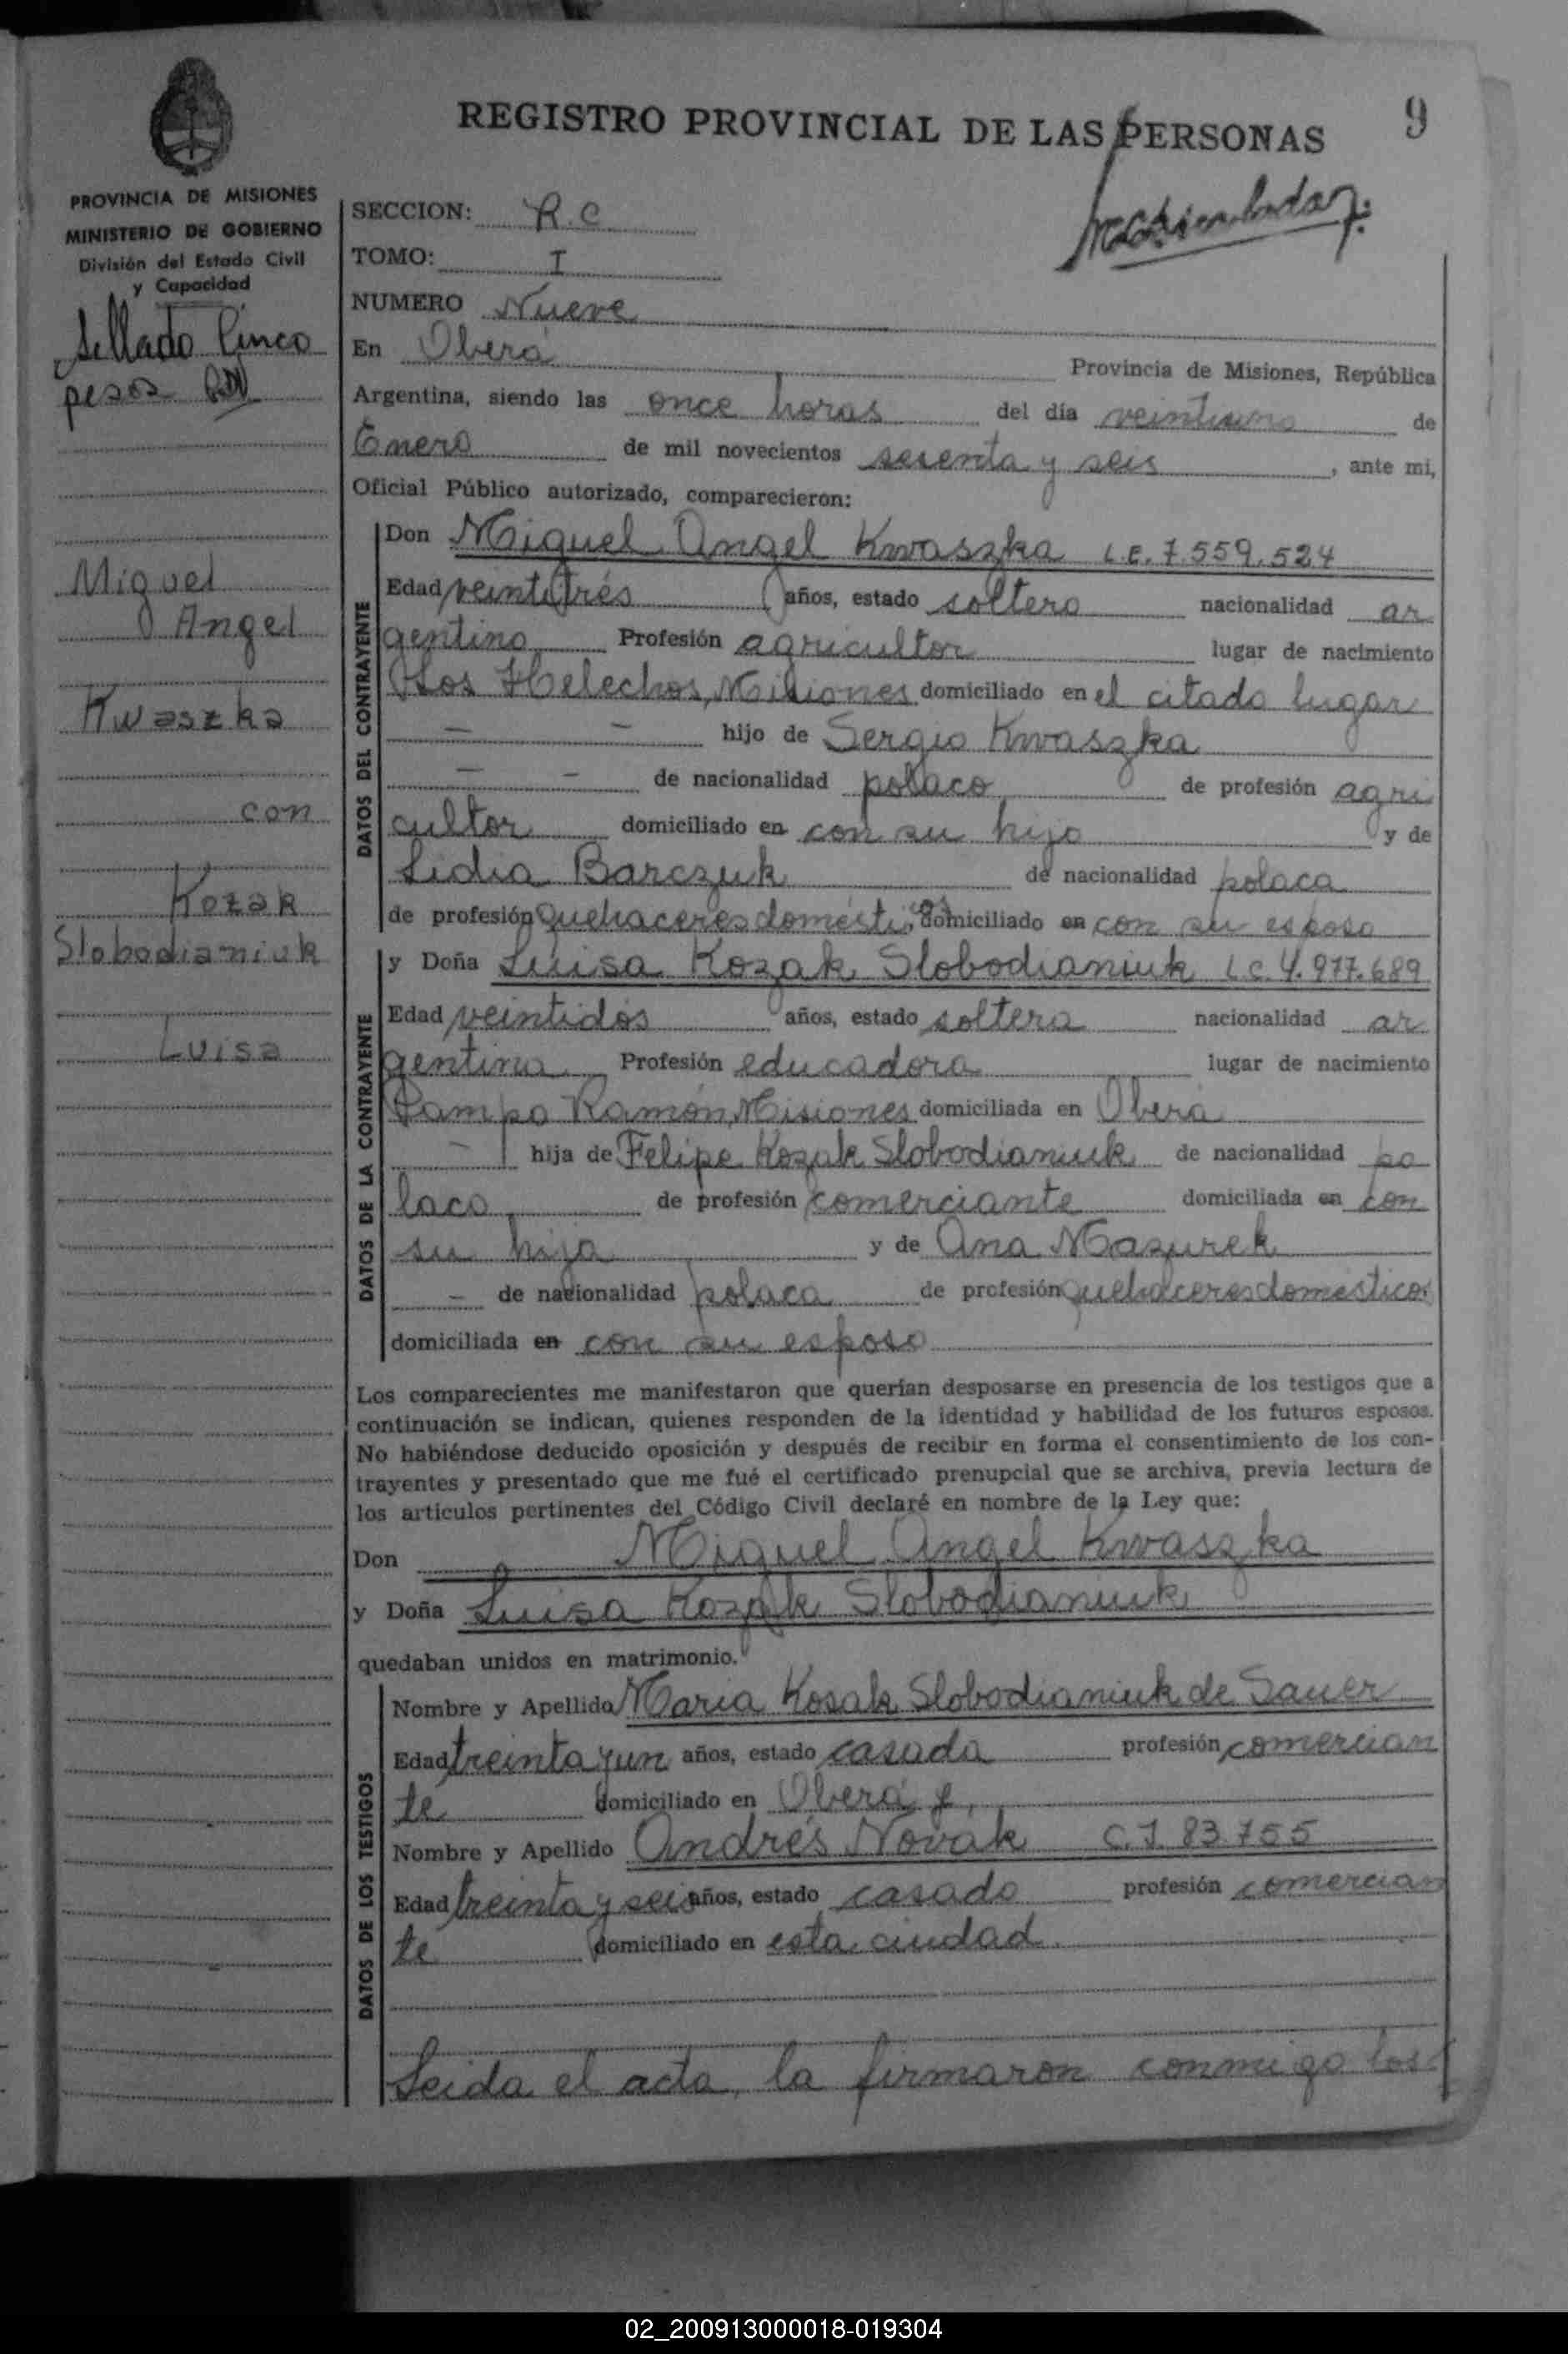 REGISTRO PROVINCIAL DE LAS PERSONAS
9
PROVINCIA DE MISIONES
MINISTERIO DE GOBIERNO
División del Estado Civil
y Capacidad
Sellado Cinco
pesos
Miguel
Angel
Kwaszka
con
Kozak
Slobodianiuk
Luisa
SECCION: R.C
TOMO: I
NUMERO Nueve
En Oberá Provincia de Misiones, República
Argentina, siendo las once horas del día veintiuno de
Enero de mil novecientos sesenta y seis, ante mi,
Oficial Público autorizado, comparecieron:
DATOS DEL CONTRAYENTE
Don Miguel Angel Kwaszka L.E. 7.559.524
Edad veintitrés años, estado soltero nacionalidad ar
gentino Profesión agricultor lugar de nacimiento
Los Helechos, Misiones domiciliado en el citado lugar
— — hijo de Sergio Kwaszka
— — de nacionalidad polaco de profesión agri
cultor domiciliado en con su hijo y de
Lidia Barczuk de nacionalidad polaca
de profesión quehaceres domésticos domiciliado en con su esposo
DATOS DE LA CONTRAYENTE
y Doña Luisa Kozak Slobodianiuk L.C. 4.977.689
Edad veintidós años, estado soltera nacionalidad ar
gentina Profesión educadora lugar de nacimiento
Campo Ramón, Misiones domiciliada en Oberá
— hija de Felipe Kozak Slobodianiuk de nacionalidad po
laco de profesión comerciante domiciliada en con
su hija y de Ana Mazurek
— de nacionalidad polaca de profesión quehaceres domésticos
domiciliada en con su esposo
Los comparecientes me manifestaron que querían desposarse en presencia de los testigos que a
continuación se indican, quienes responden de la identidad y habilidad de los futuros esposos.
No habiéndose deducido oposición y después de recibir en forma el consentimiento de los con-
trayentes y presentado que me fué el certificado prenupcial que se archiva, previa lectura de
los artículos pertinentes del Código Civil declaré en nombre de la Ley que:
Don Miguel Angel Kwaszka
y Doña Luisa Kozak Slobodianiuk
quedaban unidos en matrimonio.
DATOS DE LOS TESTIGOS
Nombre y Apellido Maria Kosak Slobodianiuk de Sauer
Edad treinta y un años, estado casada profesión comercian
te domiciliado en Oberá y
Nombre y Apellido Andrés Novak C.I. 83.755
Edad treinta y seis años, estado casado profesión comercian
te domiciliado en esta ciudad.
Leida el acta, la firmaron conmigo los
02_200913000018-019304